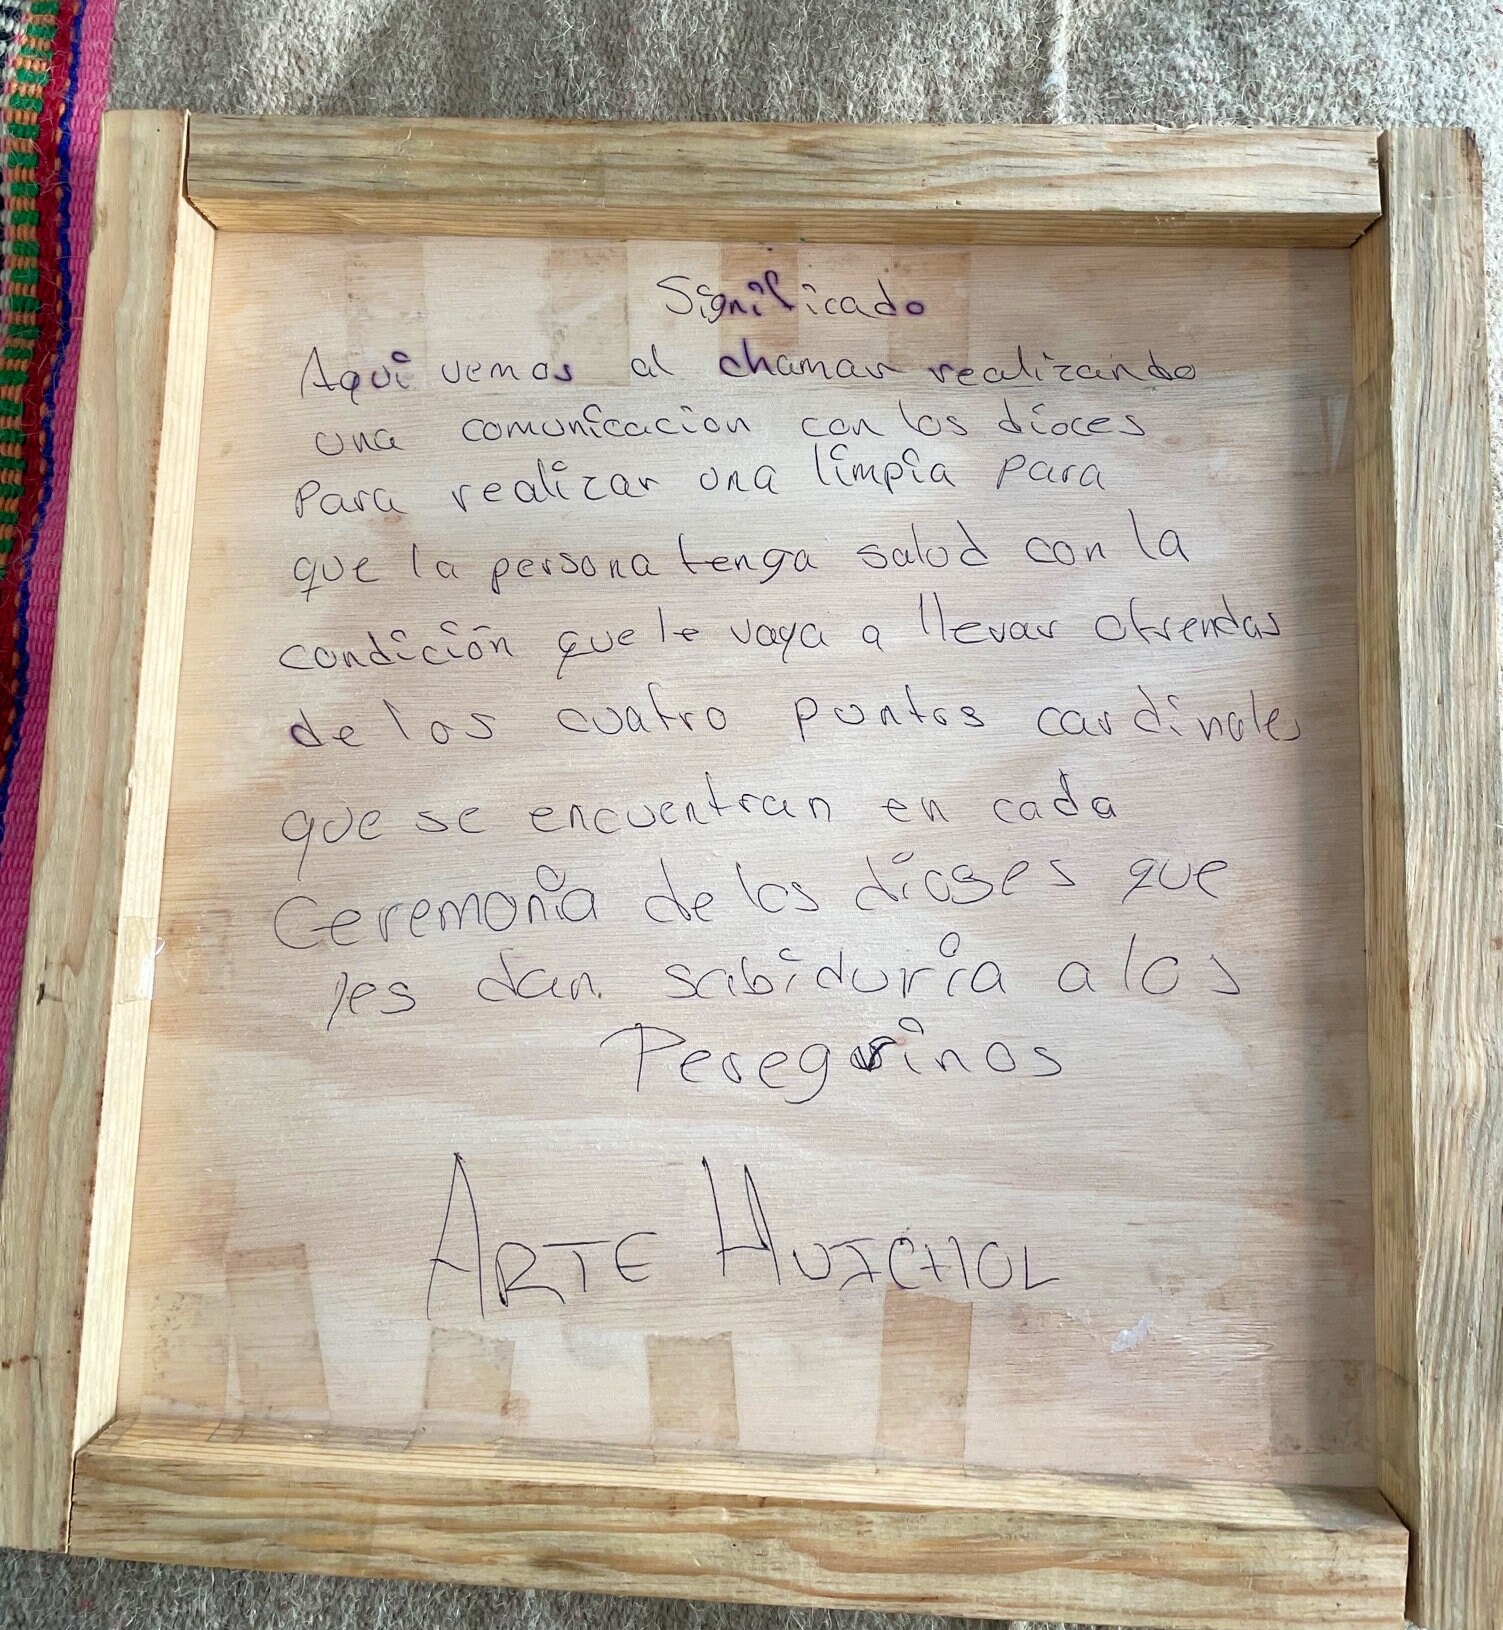 Significado
Aqui vemos al chaman realizando
una comunicacion con los dioces
Para realizar una limpia para
que la persona tenga salud con la
condición que le vaya a llevar ofrendas
de los cuatro puntos cardinales
que se encuentran en cada
Ceremonia de los dioses que
les dan sabiduria a los
Peregrinos
ARTE HUICHOL